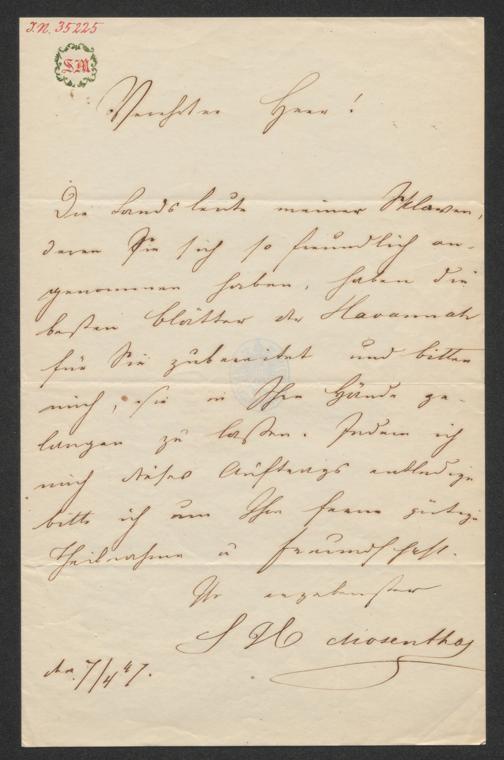 I.N. 35225
SM
Verehrter Herr!
Die Landsleute meiner Sklaven,
deren Sie sich so freundlich an-
genommen haben, haben die
besten Blätter der Havannah
für Sie zubereitet und bitten
mich, sie in Ihre Hände ge-
langen zu lassen. Indem ich
mich dieses Auftrags entledige
bitte ich um Ihre ferne gütige
Theilnahme u Freundschaft.
Ihr ergebenster
S H Mosenthal
den 7/4 47.